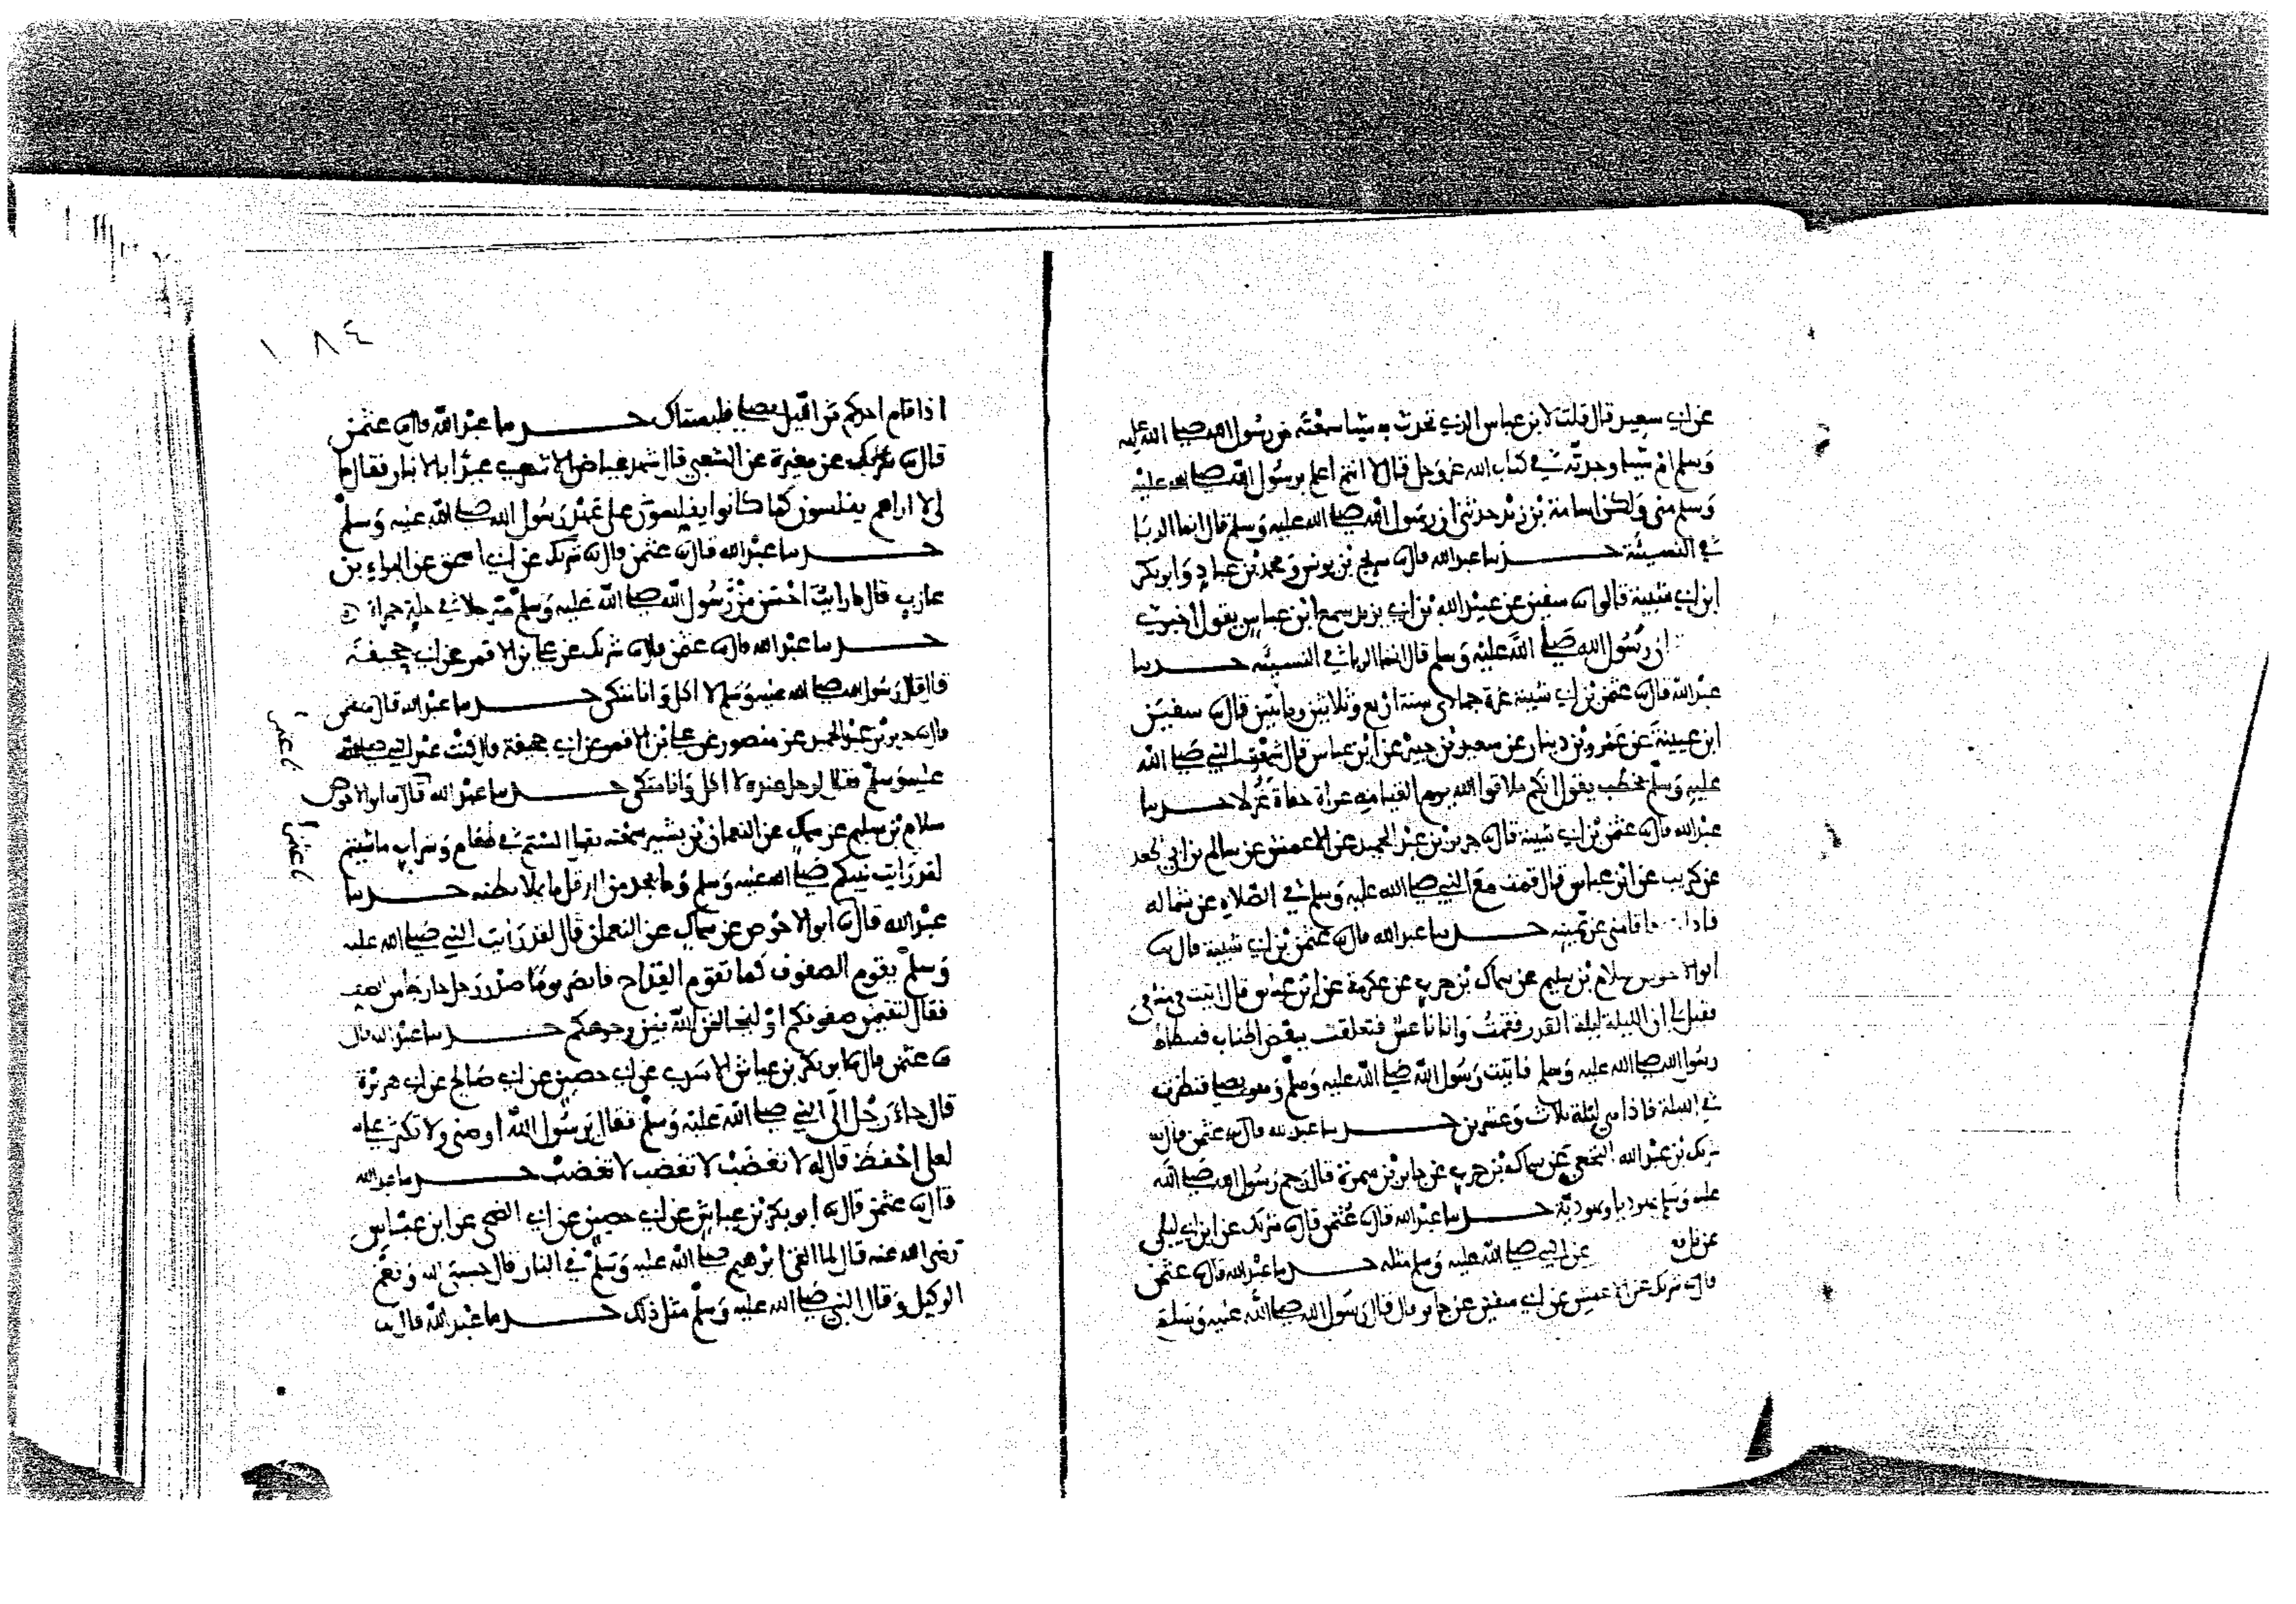 عن ابي سعيد قال قلت لابن عباس الذي تحدث به شيا سمعته من رسول الله صلى الله عليه
وسلم ام شيا وجدته في كتاب الله عز وجل قال لا انتم اعلم برسول الله صلى الله عليه
وسلم مني ولكن اسامة بن زيد حدثني ان رسول الله صلى الله عليه وسلم قال انما الربا
في النسيئة حدثنا عبد الله قال نا سريج بن يونس ومحمد بن عباد وابو بكر
ابن ابي شيبة قالوا نا سفين عن عبيد الله بن ابي يزيد سمع ابن عباس يقول اخبرني
ان رسول الله صلى الله عليه وسلم قال انما الربا في النسيئه حدثنا
عبد الله قال نا عثمن بن ابي شيبة غرة جمادى سنة اربع وثلاثين ومايتين قال نا سفين
ابن عيينة عن عمرو بن دينار عن سعيد بن جبير عن ابن عباس قال سمعت النبي صلى الله
عليه وسلم يخطب يقول انكم ملاقوا الله يوم القيامه عراة حفاة غرلا حدثنا
عبد الله قال نا عثمن بن ابي شيبة قال نا جرير بن عبد الحميد عن الاعمش عن سالم بن ابي الجعد
عن كريب عن ابن عباس قال قمت مع النبي صلى الله عليه وسلم في الصلاه عن شماله
فاقامني عن يمينه حدثنا عبد الله قال نا عثمن بن ابي شيبة قال نا
ابو الاحوص سلام بن سليم عن سماك بن حرب عن عكرمة عن ابن عباس قال اتيت في منامي
فقيل لي ان الليلة ليلة القدر فقمت وانا ناعس فتعلقت ببعض اطناب فسطاط
رسول الله صلى الله عليه وسلم فاتيت رسول الله صلى الله عليه وسلم وهو يصلي فنظرت
في الليلة فاذا هي ليلة ثلاث وعشرين حدثنا عبد الله قال نا عثمن قال نا
شريك بن عبد الله النخعي عن سماك بن حرب عن جابر بن سمرة قال رجم رسول الله صلى الله
عليه وسلم يهوديا ويهودية حدثنا عبد الله قال نا عثمن قال نا شريك عن ابن ابي ليلى
عن نافع عن النبي صلى الله عليه وسلم مثله حدثنا عبد الله قال نا عثمن
قال نا شريك عن الاعمش عن ابي سفين عن جابر قال قال رسول الله صلى الله عليه وسلم
١٨٤
اذا قام احدكم من الليل يصلي فليستاك حدثنا عبد الله قال نا عثمن
قال نا شريك عن مغيرة عن الشعبي قال شهد عياض الاشعري عيدا بالانبار فقال ما
لي لا اراهم يقلسون كما كانوا يقلسون على عهد رسول الله صلى الله عليه وسلم
حدثنا عبد الله قال نا عثمن قال نا شريك عن ابي اسحق عن البراء بن
عازب قال ما رايت احسن من رسول الله صلى الله عليه وسلم مترجلا في حلة حمراء
حدثنا عبد الله قال نا عثمن قال نا شريك عن علي بن الاقمر عن ابي جحيفة
قال قال رسول الله صلى الله عليه وسلم لا اكل وانا متكئ حدثنا عبد الله قال نا عثمن
قال نا جرير بن عبد الحميد عن منصور عن علي بن الاقمر عن ابي جحيفة قال كنت عند النبي صلى الله
عليه وسلم فقال لرجل عنده لا اكل وانا متكئ حدثنا عبد الله قال نا ابو الاحوص
سلام بن سليم عن سماك عن النعمان بن بشير سمعته يقول الستم في طعام وشراب ما شيتم
لقد رايت نبيكم صلى الله عليه وسلم وما يجد من الدقل ما يملا بطنه حدثنا
عبد الله قال نا ابو الاحوص عن سماك عن النعمان قال لقد رايت النبي صلى الله عليه
وسلم يقوم الصفوف كما تقوم القداح فابصر يوما صدر رجل خارجا من الصف
فقال لتقيمن صفوفكم او ليخالفن الله بين وجوهكم حدثنا عبد الله قال
نا عثمن قال نا ابو بكر بن عياش الاسدي عن ابي حصين عن ابي صالح عن ابي هريرة
قال جاء رجل الى النبي صلى الله عليه وسلم فقال يرسول الله اوصني ولا تكثر علي
لعلي احفظ قال له لا تغضب لا تغضب لا تغضب حدثنا عبد الله
قال نا عثمن قال نا ابو بكر بن عياش عن ابي حصين عن ابي الضحى عن ابن عباس
رضي الله عنه قال لما القي ابرهيم صلى الله عليه وسلم في النار قال حسبي الله ونعم
الوكيل وقال النبي صلى الله عليه وسلم مثل ذلك حدثنا عبد الله قال نا